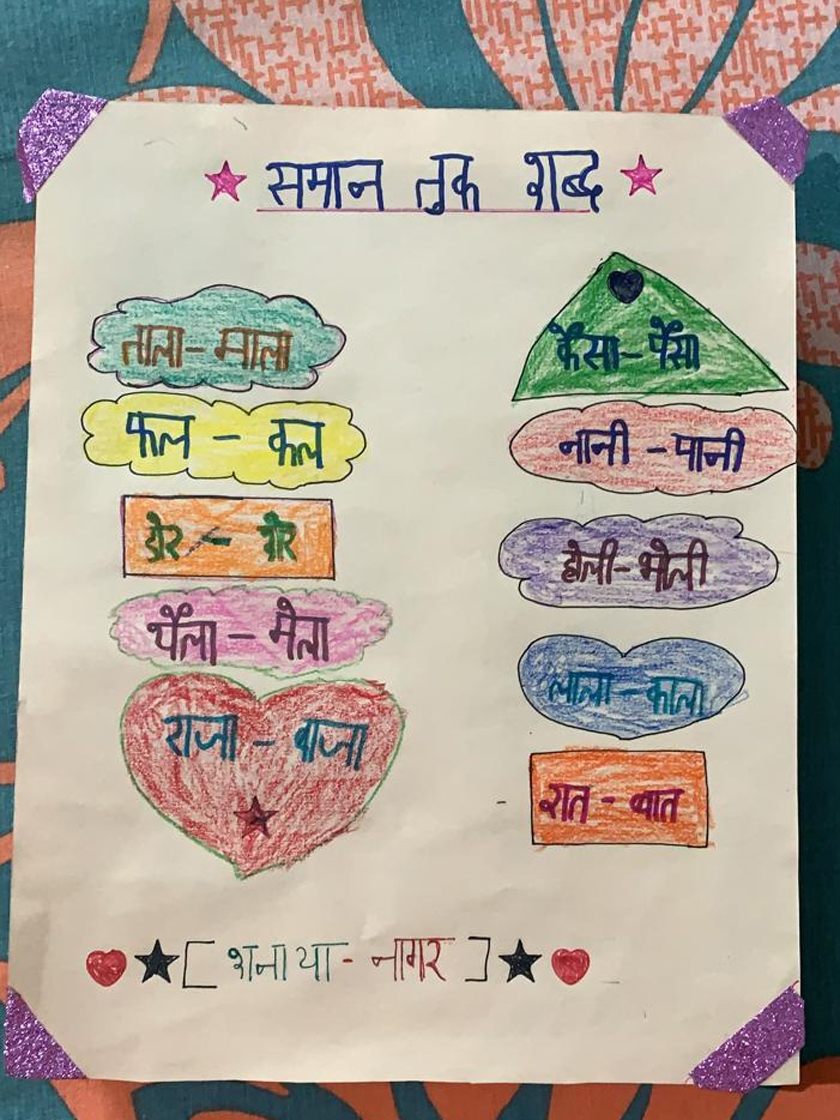 समान तुक शब्द
ताला - माला
फल - कल
डोर - शेर
थैला - मेला
राजा - बाजा
कैसा - पैसा
नानी - पानी
होली - भोली
लाला - काला
रात - बात
[ शनाया - नागर ]